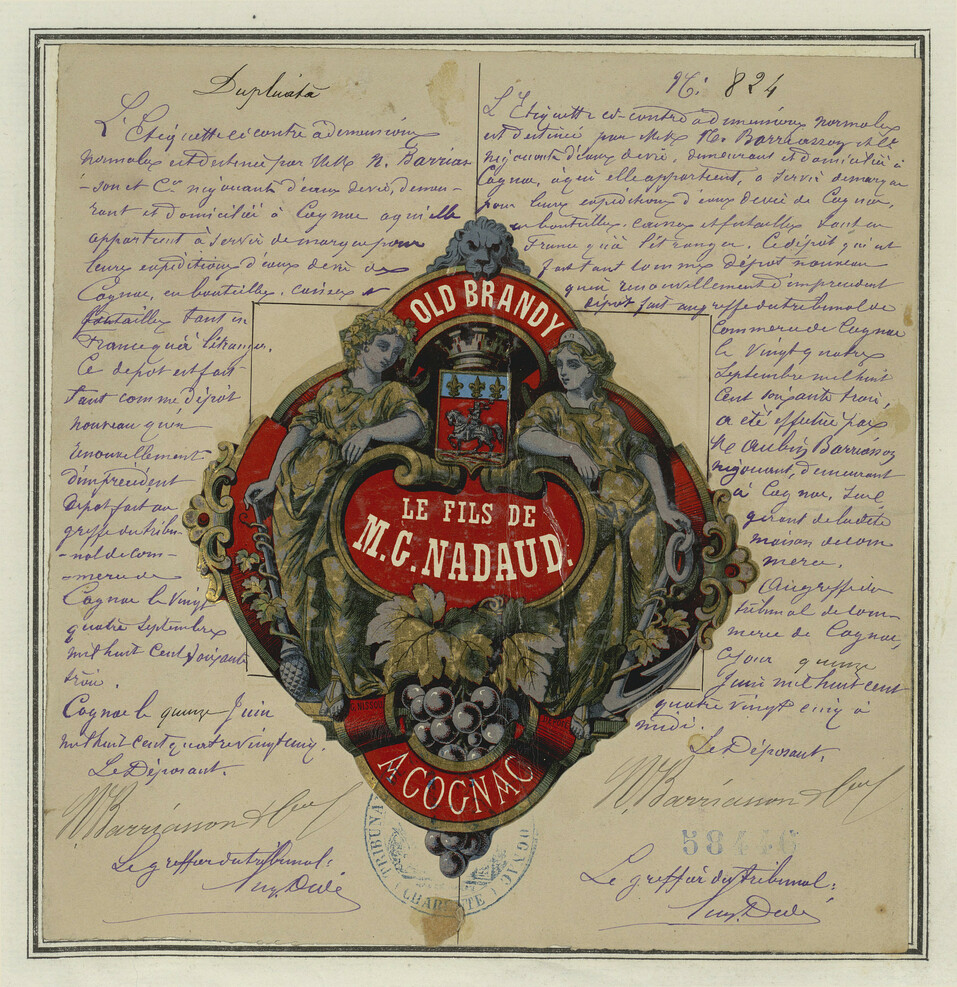 Duplicata
L'Etiquette ci contre a dimensions
normales est destinée par MM. N. Barrias-
-son et Cie négociants d'eaux de vie, demeu-
-rant et domiciliés à Cognac a qui elle
appartient à servir de marque pour
leurs expéditions d'eaux de vie de
Cognac, en bouteilles, caisses et
futailles tant en
France qu'à l'étranger.
Ce dépot est fait
tant comme dépôt
nouveau qu'en
renouvellement
d'un précédent
Dépot fait au
greffe du tribu-
-nal de com-
-merce de
Cognac le Vingt
quatre Septembre
mil huit Cent Soixante
trois.
Cognac le quinze Juin
mil huit cent quatre vingt cinq.
Le Déposant.
N. Barriasson &
Le greffier du tribunal:
No. 824
L'Etiquette ci-contre a dimensions normales
est destinée par MM. N. Barriasson et Cie
négociants d'eaux de vie, demeurant et domiciliés à
Cognac, a qui elle appartient, a servir de marque
pour leurs expéditions d'eaux de vie de Cognac,
en bouteilles, caisses et futailles tant en
France qu'à l'étranger. Ce dépôt qui est
fait tant comme dépôt nouveau
qu'en renouvellement d'un précédent
dépôt fait au greffe du tribunal de
Commerce de Cognac
le Vingt quatre
Septembre mil huit
Cent soixante trois,
a été effectué par
M. Aubin Barriasson
négociant, demeurant
à Cognac, Seul
gérant de la dite
maison de com
merce.
Au greffe du
tribunal de com
merce de Cognac,
ce jour quinze
Juin mil huit cent
quatre vingt cinq à
midi.
Le Déposant.
N. Barriasson &
58446
Le greffier du tribunal:
OLD BRANDY
LE FILS DE
M.C. NADAUD.
A COGNAC
TRIBUNAL
COGNAC
CHARENTE